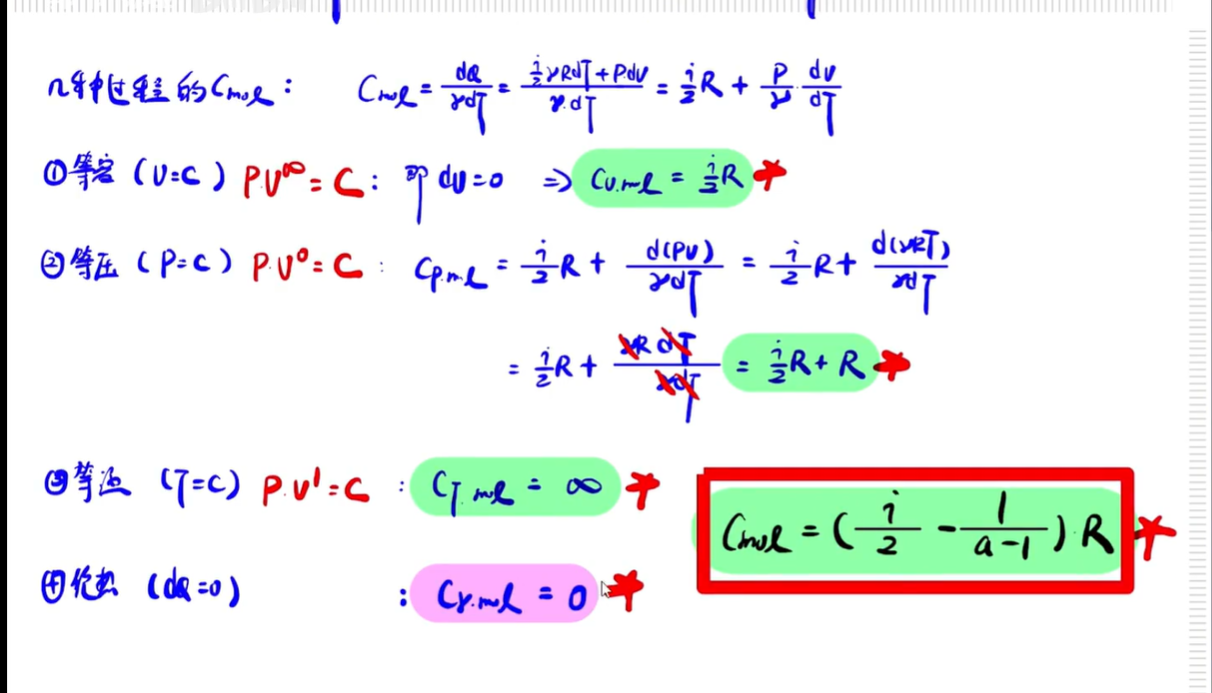 几种过程的Cmol： Cmol = dQ/νdT = (i/2 νRdT + PdV)/(ν·dT) = i/2 R + P/ν · dV/dT
①等容（V=C）PV^∞ = C： 即 dV=0 ⇒ CV.mol = i/2 R
②等压（P=C）P.V^0 = C： CP.mol = i/2 R + d(PV)/νdT = i/2 R + d(νRT)/νdT
= i/2 R + νRdT/νdT = i/2 R + R
③等温（T=C）P.V^1 = C ： CT.mol = ∞
Cmol = (i/2 - 1/(a-1)) R
④绝热（dQ=0） ： Cγ.mol = 0